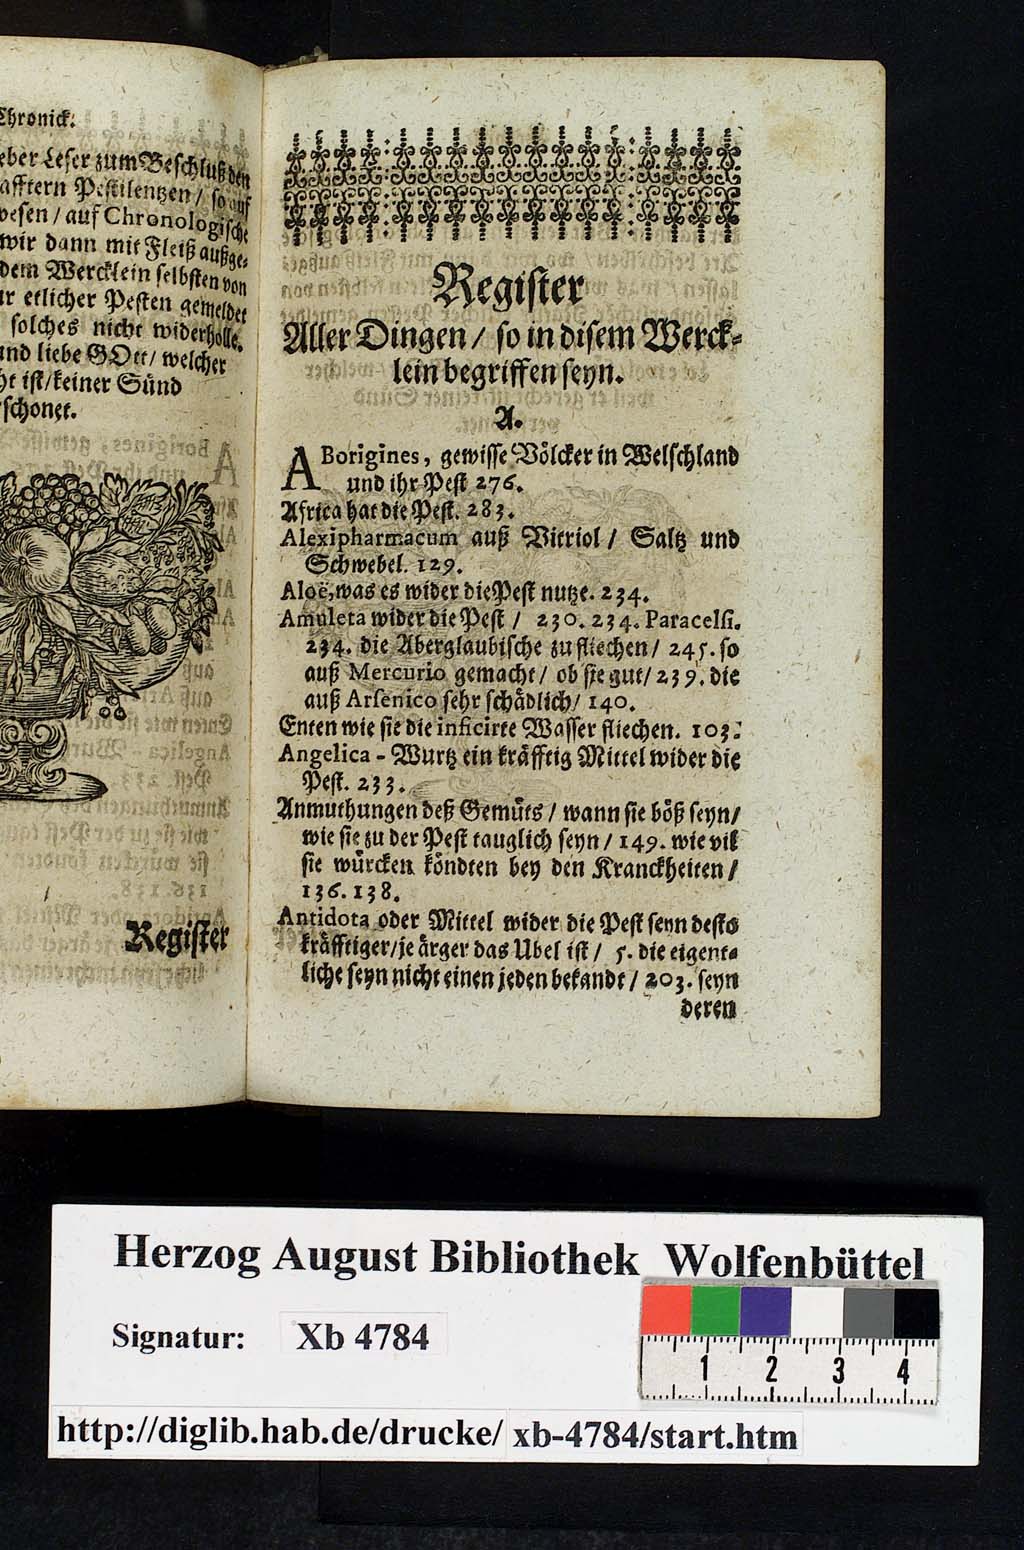 Chronick.
eber Leser zum Beschluß den
afftern Pestilentzen / so auf
wesen / auf Chronologische
wir dann mit Fleiß außge-
dem Wercklein selbsten von
ur etlicher Pesten gemeldet
solches nicht widerholle.
und liebe GOtt / welcher
ht ist / keiner Sünd
schonet.
Register
Register
Aller Dingen / so in disem Werck-
lein begriffen seyn.
A.
ABorigines, gewisse Völcker in Welschland
und ihr Pest 276.
Africa hat die Pest. 283.
Alexipharmacum auß Vitriol / Saltz und
Schwebel. 129.
Aloë, was es wider die Pest nutze. 234.
Amuleta wider die Pest / 230. 234. Paracelsi.
234. die Aberglaubische zu fliechen / 245. so
auß Mercurio gemacht / ob sie gut / 239. die
auß Arsenico sehr schädlich / 140.
Enten wie sie die inficirte Wasser fliechen. 103.
Angelica - Wurtz ein kräfftig Mittel wider die
Pest. 233.
Anmuthungen deß Gemüts / wann sie böß seyn /
wie sie zu der Pest tauglich seyn / 149. wie vil
sie würcken köndten bey den Kranckheiten /
136. 138.
Antidota oder Mittel wider die Pest seyn desto
kräfftiger / je ärger das Ubel ist / 5. die eigent-
liche seyn nicht einen jeden bekandt / 203. seyn
deren
Herzog August Bibliothek Wolfenbüttel
Signatur: Xb 4784
1 2 3 4
http://diglib.hab.de/drucke/ xb-4784/start.htm